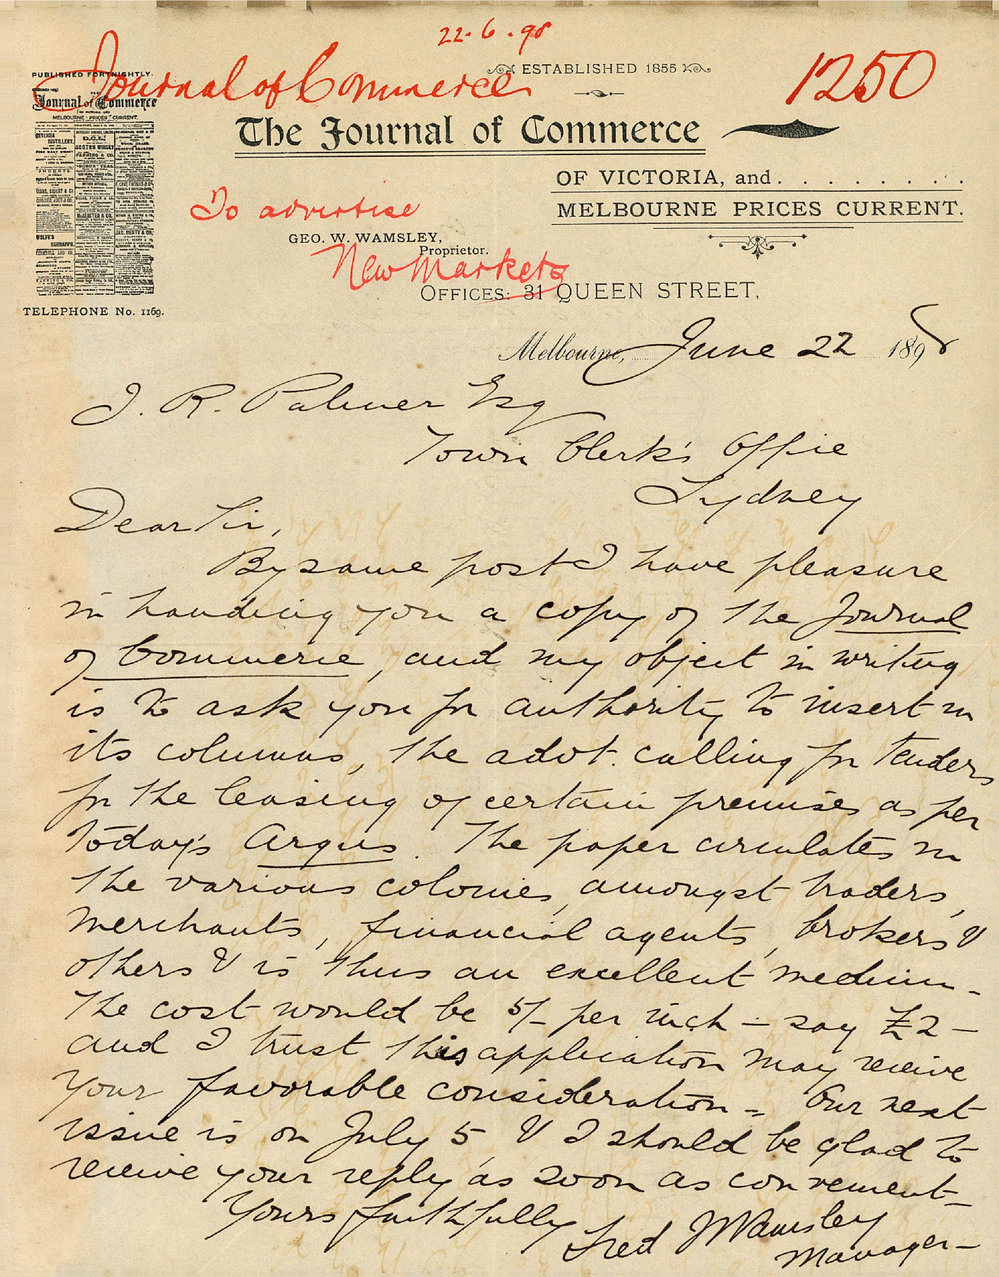 22.6.98
Journal of Commerce
1250
ESTABLISHED 1855
PUBLISHED FORTNIGHTLY.
Journal of Commerce
MELBOURNE PRICES CURRENT.
The Journal of Commerce
OF VICTORIA, and . . . . . . . . . .
MELBOURNE PRICES CURRENT.
To advertise
GEO. W. WAMSLEY,
Proprietor.
New Markets
OFFICES: 31 QUEEN STREET,
TELEPHONE No. 1169.
Melbourne, June 22 1898
J. R. Palmer Esq
Town Clerk's Office
Sydney
Dear Sir,
By same post I have pleasure
in handing you a copy of the Journal
of Commerce, and my object in writing
is to ask you for authority to insert in
its columns, the advt. calling for tenders
for the leasing of certain premises as per
today's Argus. The paper circulates in
the various colonies, amongst traders,
merchants, financial agents, brokers &
others & is thus an excellent medium -
The cost would be 5/- per inch - say £2 -
and I trust this application may receive
your favorable consideration - Our next
issue is on July 5 & I should be glad to
receive your reply as soon as convenient -
Yours faithfully
Fred J Wamsley
Manager -